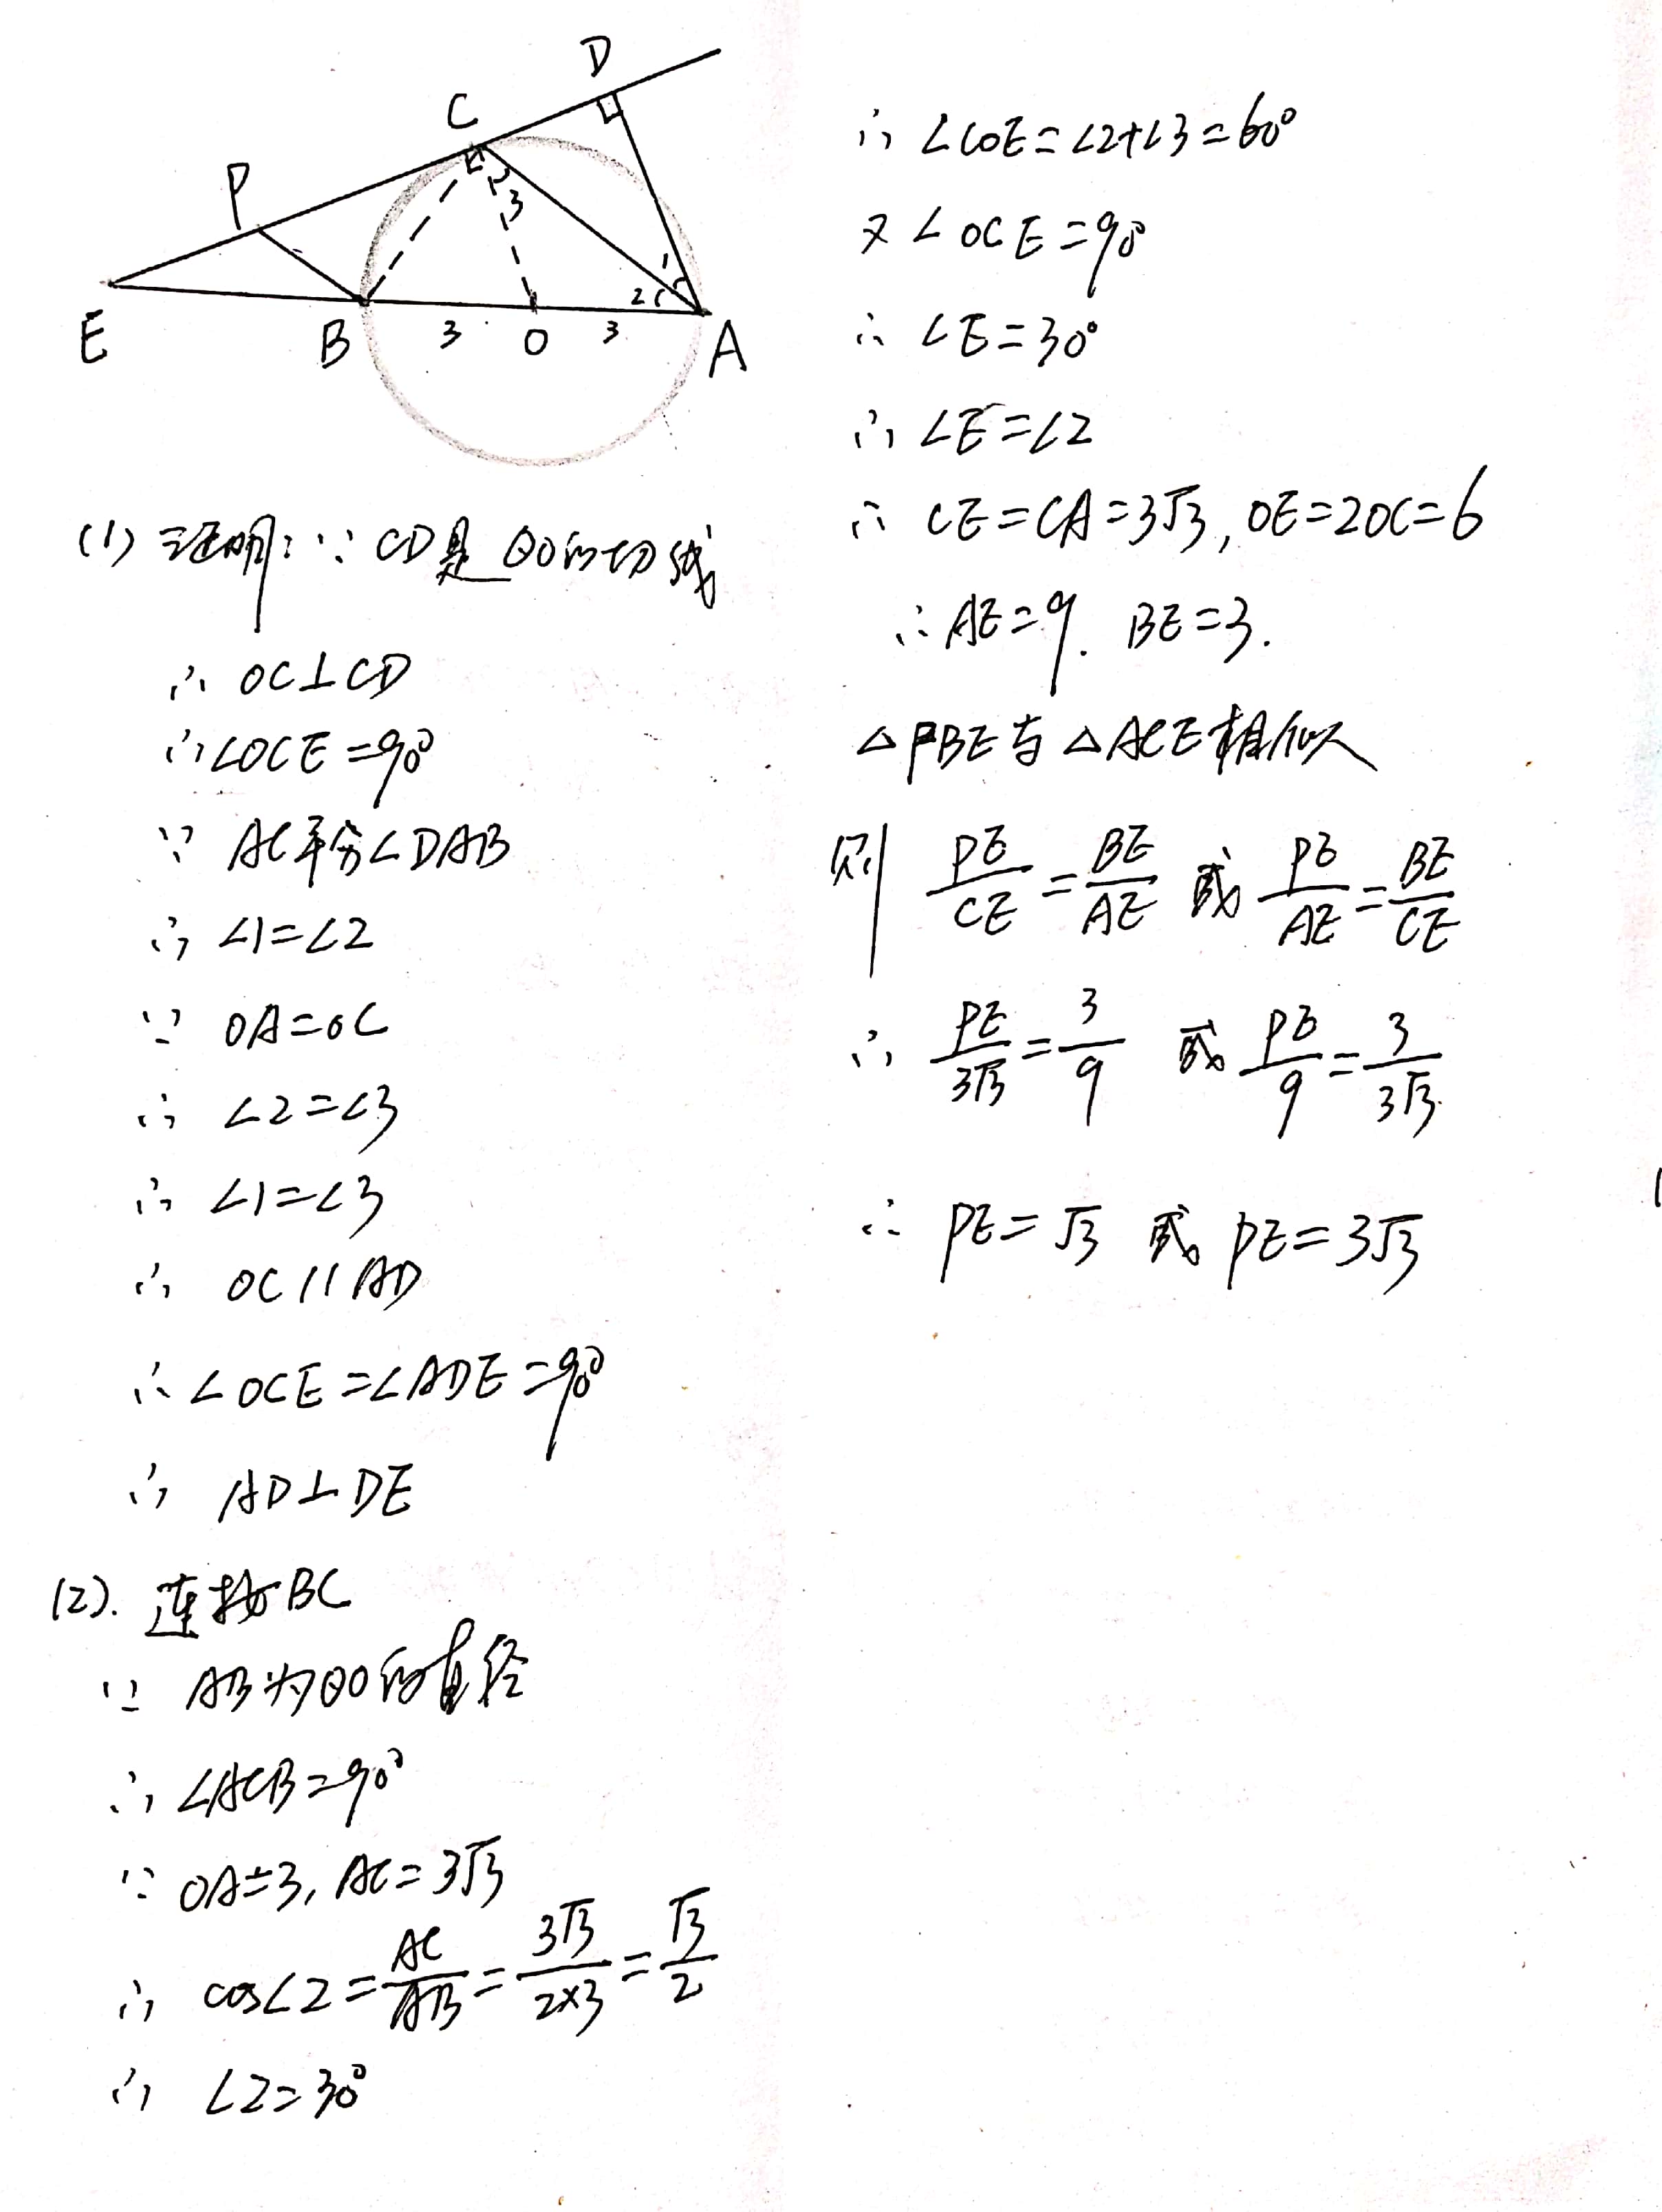 D
C
P
3
1
2
E
B
3
O
3
A
(1) 证明:∵ CD是⊙O的切线
∴ OC⊥CD
∴∠OCE=90°
∵ AC平分∠DAB
∴ ∠1=∠2
∵ OA=OC
∴ ∠2=∠3
∴ ∠1=∠3
∴ OC//AD
∴ ∠OCE=∠ADE=90°
∴ AD⊥DE
(2). 连接BC
∵ AB为⊙O的直径
∴ ∠ACB=90°
∵ OA=3, AC=3√3
∴ cos∠2=AC/AB=3√3/2×3=√3/2
∴ ∠2=30°
∴ ∠COE=∠2+∠3=60°
又∠OCE=90°
∴ ∠E=30°
∴ ∠E=∠2
∴ CE=CA=3√3, OE=2OC=6
∴ AE=9. BE=3.
△PBE与△ACE相似
则 PE/CE=BE/AE 或 PE/AE=BE/CE
∴ PE/3√3=3/9 或 PE/9=3/3√3
∴ PE=√3 或 PE=3√3